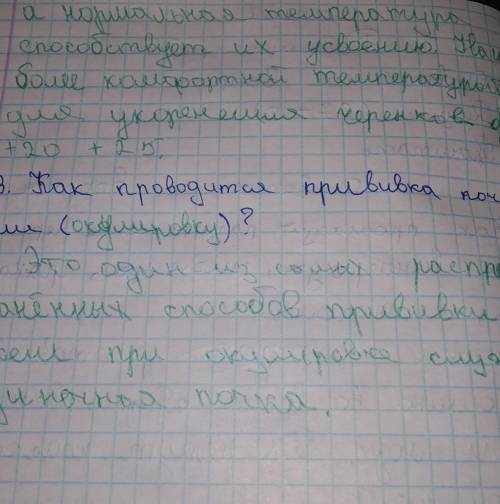 а нормальная температура
способствует их усвоению. Наи
более комфортной температурой
для укоренения черенков
+20 +25.
3. Как проводится прививка поч
ами (окулировку)?
Это один из самых распро
анённых способов прививки
оем при окулировке слу
диночная почка.